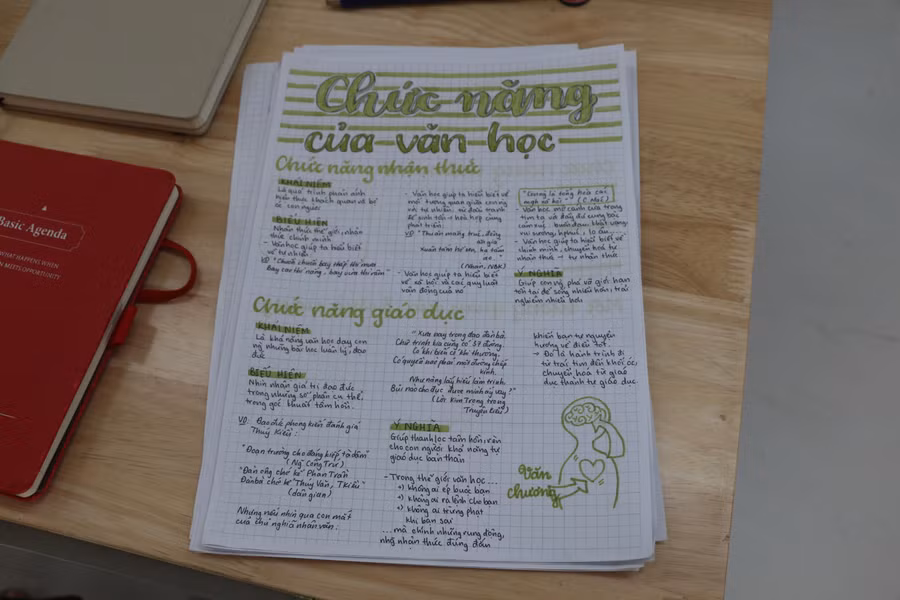 Chức năng
của văn học
Chức năng nhận thức
KHÁI NIỆM
Là quá trình phản ánh
hiện thực khách quan về bộ
óc con người
BIỂU HIỆN
Nhận thức thế giới, nhận
thức chính mình
- Văn học giúp ta hiểu biết
về tự nhiên
VD "Chuồn chuồn bay thấp thì mưa
Bay cao thì nắng, bay vừa thì râm"
- Văn học giúp ta hiểu biết về
mối tương quan giữa con ng
và tự nhiên, từ đó
để sinh tồn & hoà hợp cùng
phát triển
VD
(Nhàn, NBK)
- Văn học giúp ta hiểu biết
về xã hội và các quy luật
vận động của nó
- Văn học mở cánh cửa trong
tim ta và đầy đủ cung bậc
cảm xúc: buồn đau, khát vọng,
vui sướng, lo âu,...
- Văn học giúp ta hiểu biết về
chính mình, chuyển hoá từ
nhận thức → tự nhận thức
Ý NGHĨA
Giúp con ng phá vỡ giới hạn
tồn tại để sống nhiều hơn, trải
nghiệm nhiều hơn
Chức năng giáo dục
KHÁI NIỆM
Là khả năng văn học dạy con
ng những bài học luân lý, đạo
đức
BIỂU HIỆN
Nhìn nhận giá trị đạo đức
trong những số phận cụ thể,
trong góc khuất tâm hồn.
VD: Đạo đức phong kiến đánh giá
Thuý Kiều:
"Đoạn trường cho đáng kiếp tà dâm"
(Ng Công Trứ)
"Đàn ông chớ kể Phan Trần
Đàn bà chớ kể Thuý Vân, T.Kiều"
(dân gian)
Nhưng nếu nhìn qua con mắt
của chủ nghĩa nhân văn:
"Xưa nay trong đạo đàn bà
Chữ trinh kia cũng có 3, 7 đường.
Có khi biến có khi thường,
Có quyền nào phải một đường chấp
kinh.
Như nàng lấy hiếu làm trinh
Bụi nào cho đục được mình ấy vay?"
(Lời Kim Trọng trong
Truyện Kiều)
Ý NGHĨA
Giúp thanh lọc tâm hồn, rèn
cho con người khả năng tự
giáo dục bản thân
- Trong thế giới văn học ...
+) không ai ép buộc bạn
+) không ai ra lệnh cho bạn
+) không ai trừng phạt
khi bạn sai
... mà chính những rung động,
nhg nhận thức đúng đắn
khiến bạn tự nguyện
hướng về điều tốt.
→ Đó là hành trình đi
từ trái tim đến khối óc,
chuyển hoá từ giáo
dục thành tự giáo dục
Văn
chương
Basic Agenda
WHAT HAPPENS WHEN
MEETS OPPORTUNITY